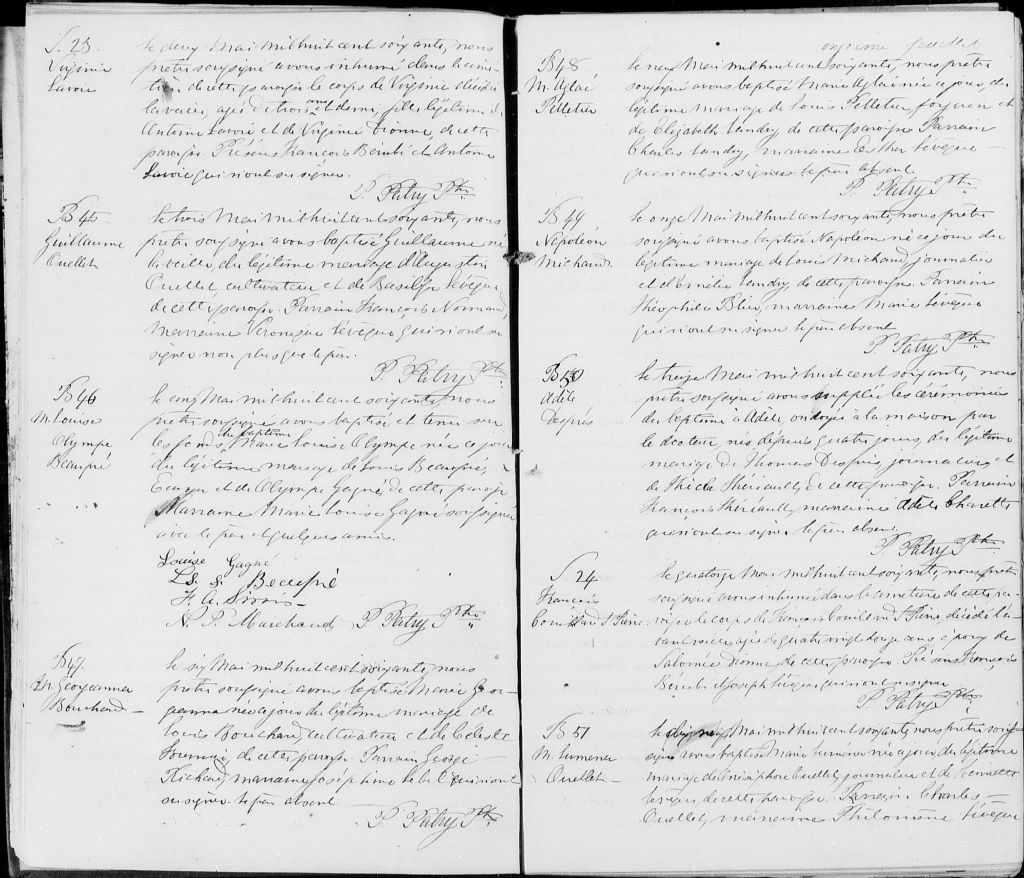 S. 23.
Virginie
Lavoie
Le deux Mai mil huit cent soixante, nous
prêtre soussigné avons inhumé dans le cime-
tière de cette paroisse le corps de Virginie décédée
la veille, agée de trois ans et demi, fille légitime d'
Antoine Lavoie et de Virginie Dionne, de cette
paroisse. Présens François Bérubé et Antoine
Lavoie qui n'ont su signer.
P. Patry Ptre
B 45
Guillaume
Ouellet
Le trois Mai mil huit cent soixante, nous
prêtre soussigné avons baptisé Guillaume né
la veille, du légitime mariage d'Augustin
Ouellet cultivateur et de Basilisse Levêque
de cette paroisse. Parrain François Normand,
Marraine Veronique Levêque qui n'ont su
signer non plus que le père.
P. Patry Ptre
B 46
M. Louise
Olympe
Beaupré
Le cinq Mai mil huit cent soixante, nous
prêtre soussigné avons baptisé et tenu sur
les fonds du baptême Marie Louise Olympe née ce jour
du légitime mariage de Louis Beaupré,
Ecuyer et de Olympe Gagné, de cette paroisse
Marraine Marie Louise Gagné soussignée
avec le père et quelques amis.
Louise Gagné
Ls. S. Beaupré
F. A. Sirois
N. P. Marchand P. Patry Ptre
B 47.
M. Georgeanna
Bouchard
Le six Mai mil huit cent soixante, nous
prêtre soussigné avons baptisé Marie Geor-
geanna née ce jour du légitime mariage de
Louis Bouchard, cultivateur et de Céleste
Fournier, de cette paroisse. Parrain George
Richard, marraine Joséphine qui n'ont
su signer le père absent
P. Patry Ptre
onzieme feuillet
B 48
M. Aglaé
Pelletier
Le neuf Mai mil huit cent soixante, nous prêtre
soussigné avons baptisé Marie Aglaé née ce jour, du
légitime mariage de Louis Pelletier, forgeron et
de Elizabeth Landry de cette paroisse Parrain
Charles Landry, marraine Esther Levêque
qui n'ont su signer le père absent
P. Patry Ptre
B 49
Napoléon
Michaud.
Le onze Mai mil huit cent soixante, nous prêtre
soussigné avons baptisé Napoléon né ce jour du
légitime mariage de Louis Michaud, journalier
et d'Emélie Landry, de cette paroisse. Parrain
Théophile Blier, marraine Marie Levêque
qui n'ont su signer le père absent
P. Patry Ptre
B 50
Adèle
Després
Le treize Mai mil huit cent soixante, nous
prêtre soussigné avons suppléé les cérémonies
du baptême à Adèle ondoyée à la maison par
le docteur, née depuis quatre jours, du légitime
mariage de Thomas Després, journalier et
de Thècle Thériault, de cette paroisse. Parrain
François Thériault, marraine Adèle Charette
qui n'ont su signer. le père absent.
P. Patry Ptre
S. 24
François
Couillard St Pierre
Le quatorze Mai mil huit cent soixante, nous prêtre
soussigné avons inhumé dans le cimetière de cette pa-
roisse le corps de François Couillard St Pierre, décédé l'a-
vant veille, agé de quatre vingt douze ans époux de
Salomée Dionne de cette paroisse. Présens François
Bérubé et Joseph Levêque qui n'ont su signer
P. Patry Ptre
B 51
M. Lumena
Ouellet
Le dix neuf Mai mil huit cent soixante, nous prêtre sous-
signé avons baptisé Marie Luména née ce jour du légitime
mariage de Onésiphore Ouellet, journalier et de Henriette
Levêque, de cette paroisse. Parrain Charles
Ouellet, marraine Philomène Levêque